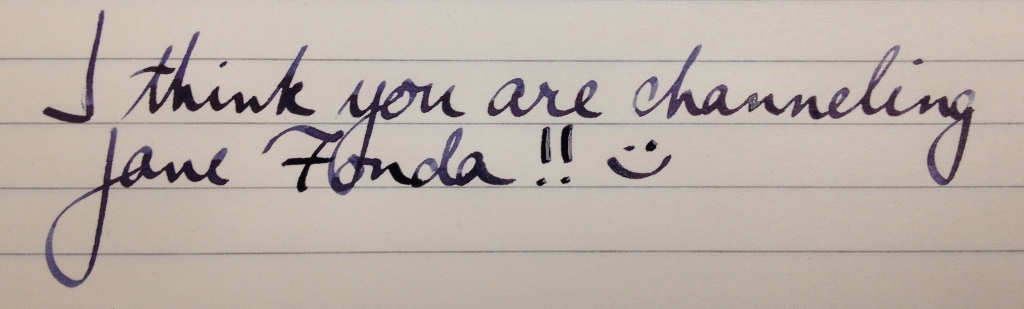 I think you are channeling
Jane Fonda !! :)